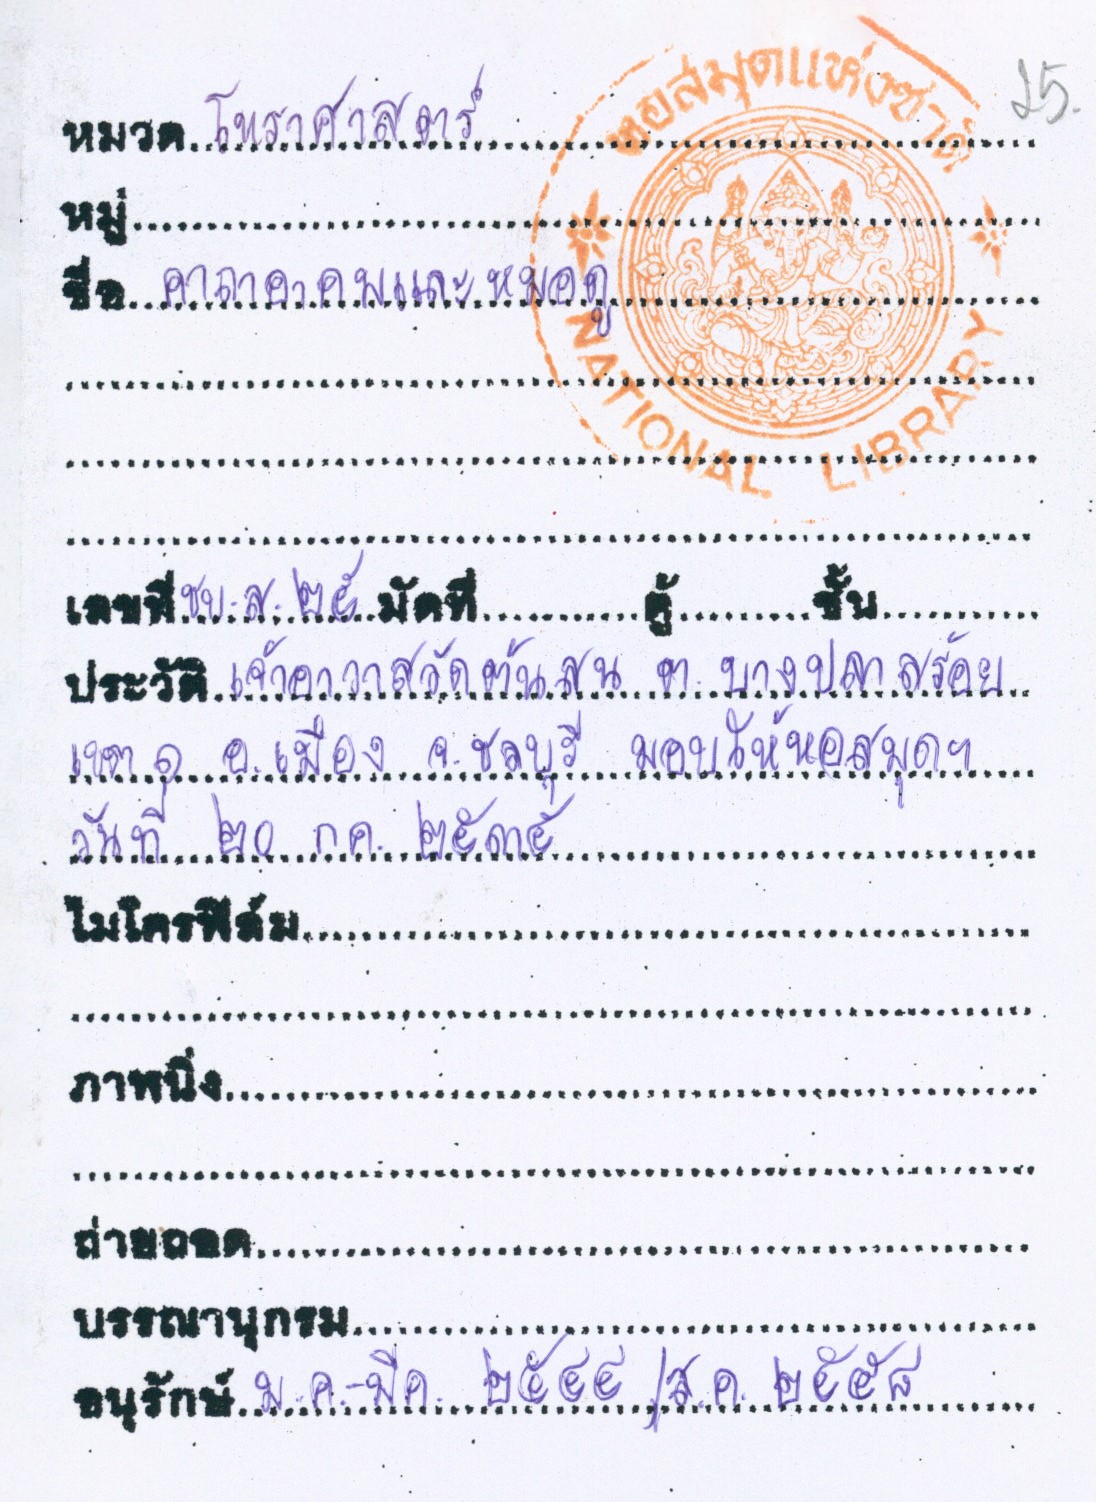 หอสมุดแห่งชาติ
25.
หมวด โหราศาสตร์
หมู่
ชื่อ คาถาอาคมและหมอดู
NATIONAL LIBRARY
เลขที่ ชบ.ส. ๒๕ มัดที่ ตู้ ชั้น
ประวัติ เจ้าอาวาสวัดต้นสน ต. บางปลาสร้อย
เขต อ.เมือง จ.ชลบุรี มอบให้หอสมุดฯ
วันที่ ๒๐ กค. ๒๕๓๕
ไมโครฟิล์ม
ภาพนิ่ง
ถ่ายถอด
บรรณานุกรม
อนุรักษ์ ม.ค.-มีค. ๒๕๔๔ /ส.ค. ๒๕๕๘